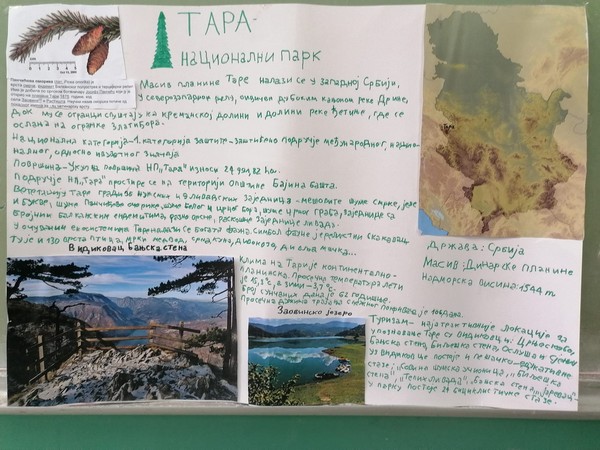 ТАРА-
НАЦИОНАЛНИ ПАРК
Масив планине Таре налази се у западној Србији,
у северозападном делу, оивичен дубоким кањоном реке Дрине,
док му се огранци спуштају ка кремнској долини и долини реке Ђетиње, где се
ослања на огранке Златибора.
Национална категорија-1. категорија заштите-заштићено подручје међународног, национ-
налног, односно изузетног значаја
Површина-Укупна површина НП„Тара" износи 24.991,82 ha.
Подручје НП„Тара" простире се на територији општине Бајина Башта.
Вегетацију Таре гради 35 шумских и 9 ливадских заједница - мешовите шуме смрке, јеле
и букве, шуме Панчићеве оморике, шуме белог и црног бора, шуме црног граба, заједнице са
бројним балканским ендемитима, разно орсне, раскошне заједнице ливада.
У очуваним екосистемима Таре налази се богата фауна. Симбол фауне је реликтни скакавац
Ту је и 130 врста птица, мрки медвед, срна, куна, дивокоза, дивља мачка...
Видиковац Бањска стена
Клима на Тари је континентално-
планинска. Просечна температура лети
је 15,2°C, а зими -3,7°C.
Број сунчаних дана је 62 годишње.
Просечна дужина трајања снежног покривача је
Заовинско језеро
Држава: Србија
Масив: Динарске планине
Надморска висина: 1544 m
Туризам- најатрактивније локације за
упознавање Таре су видиковци Црњесково,
Бањска стена, Биљешка стена, Ослуша и
уз видиковце постоје и пешачко-едукативне
стазе, „ шумска учионица", „Биљешка
стена", „Тепих ливада", „Бањска стена", „Јаревац"-
у парку постоје и бициклистичке стазе.